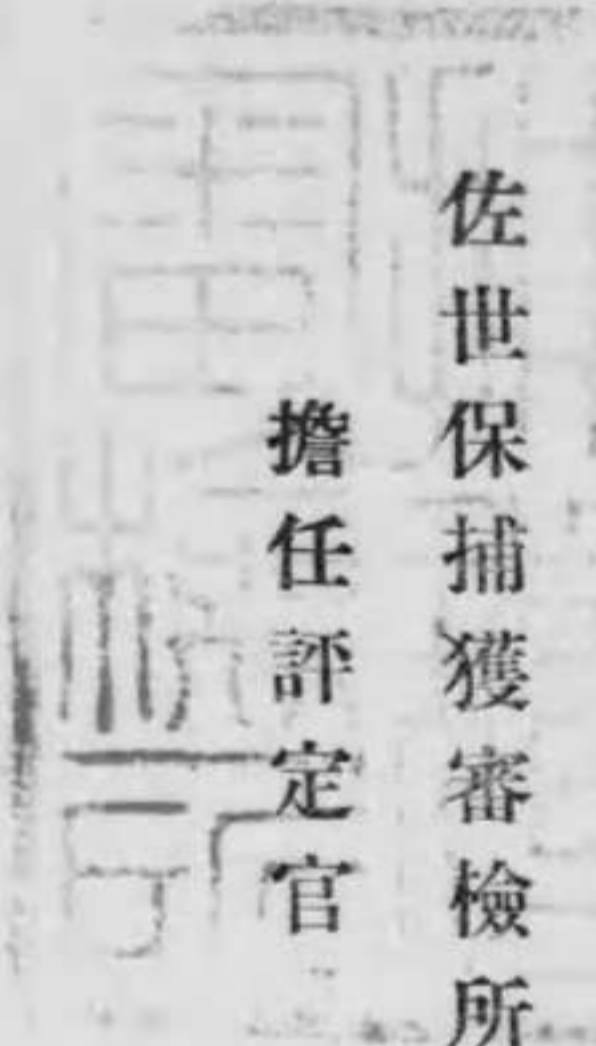 佐世保捕獲審檢所
擔任評定官